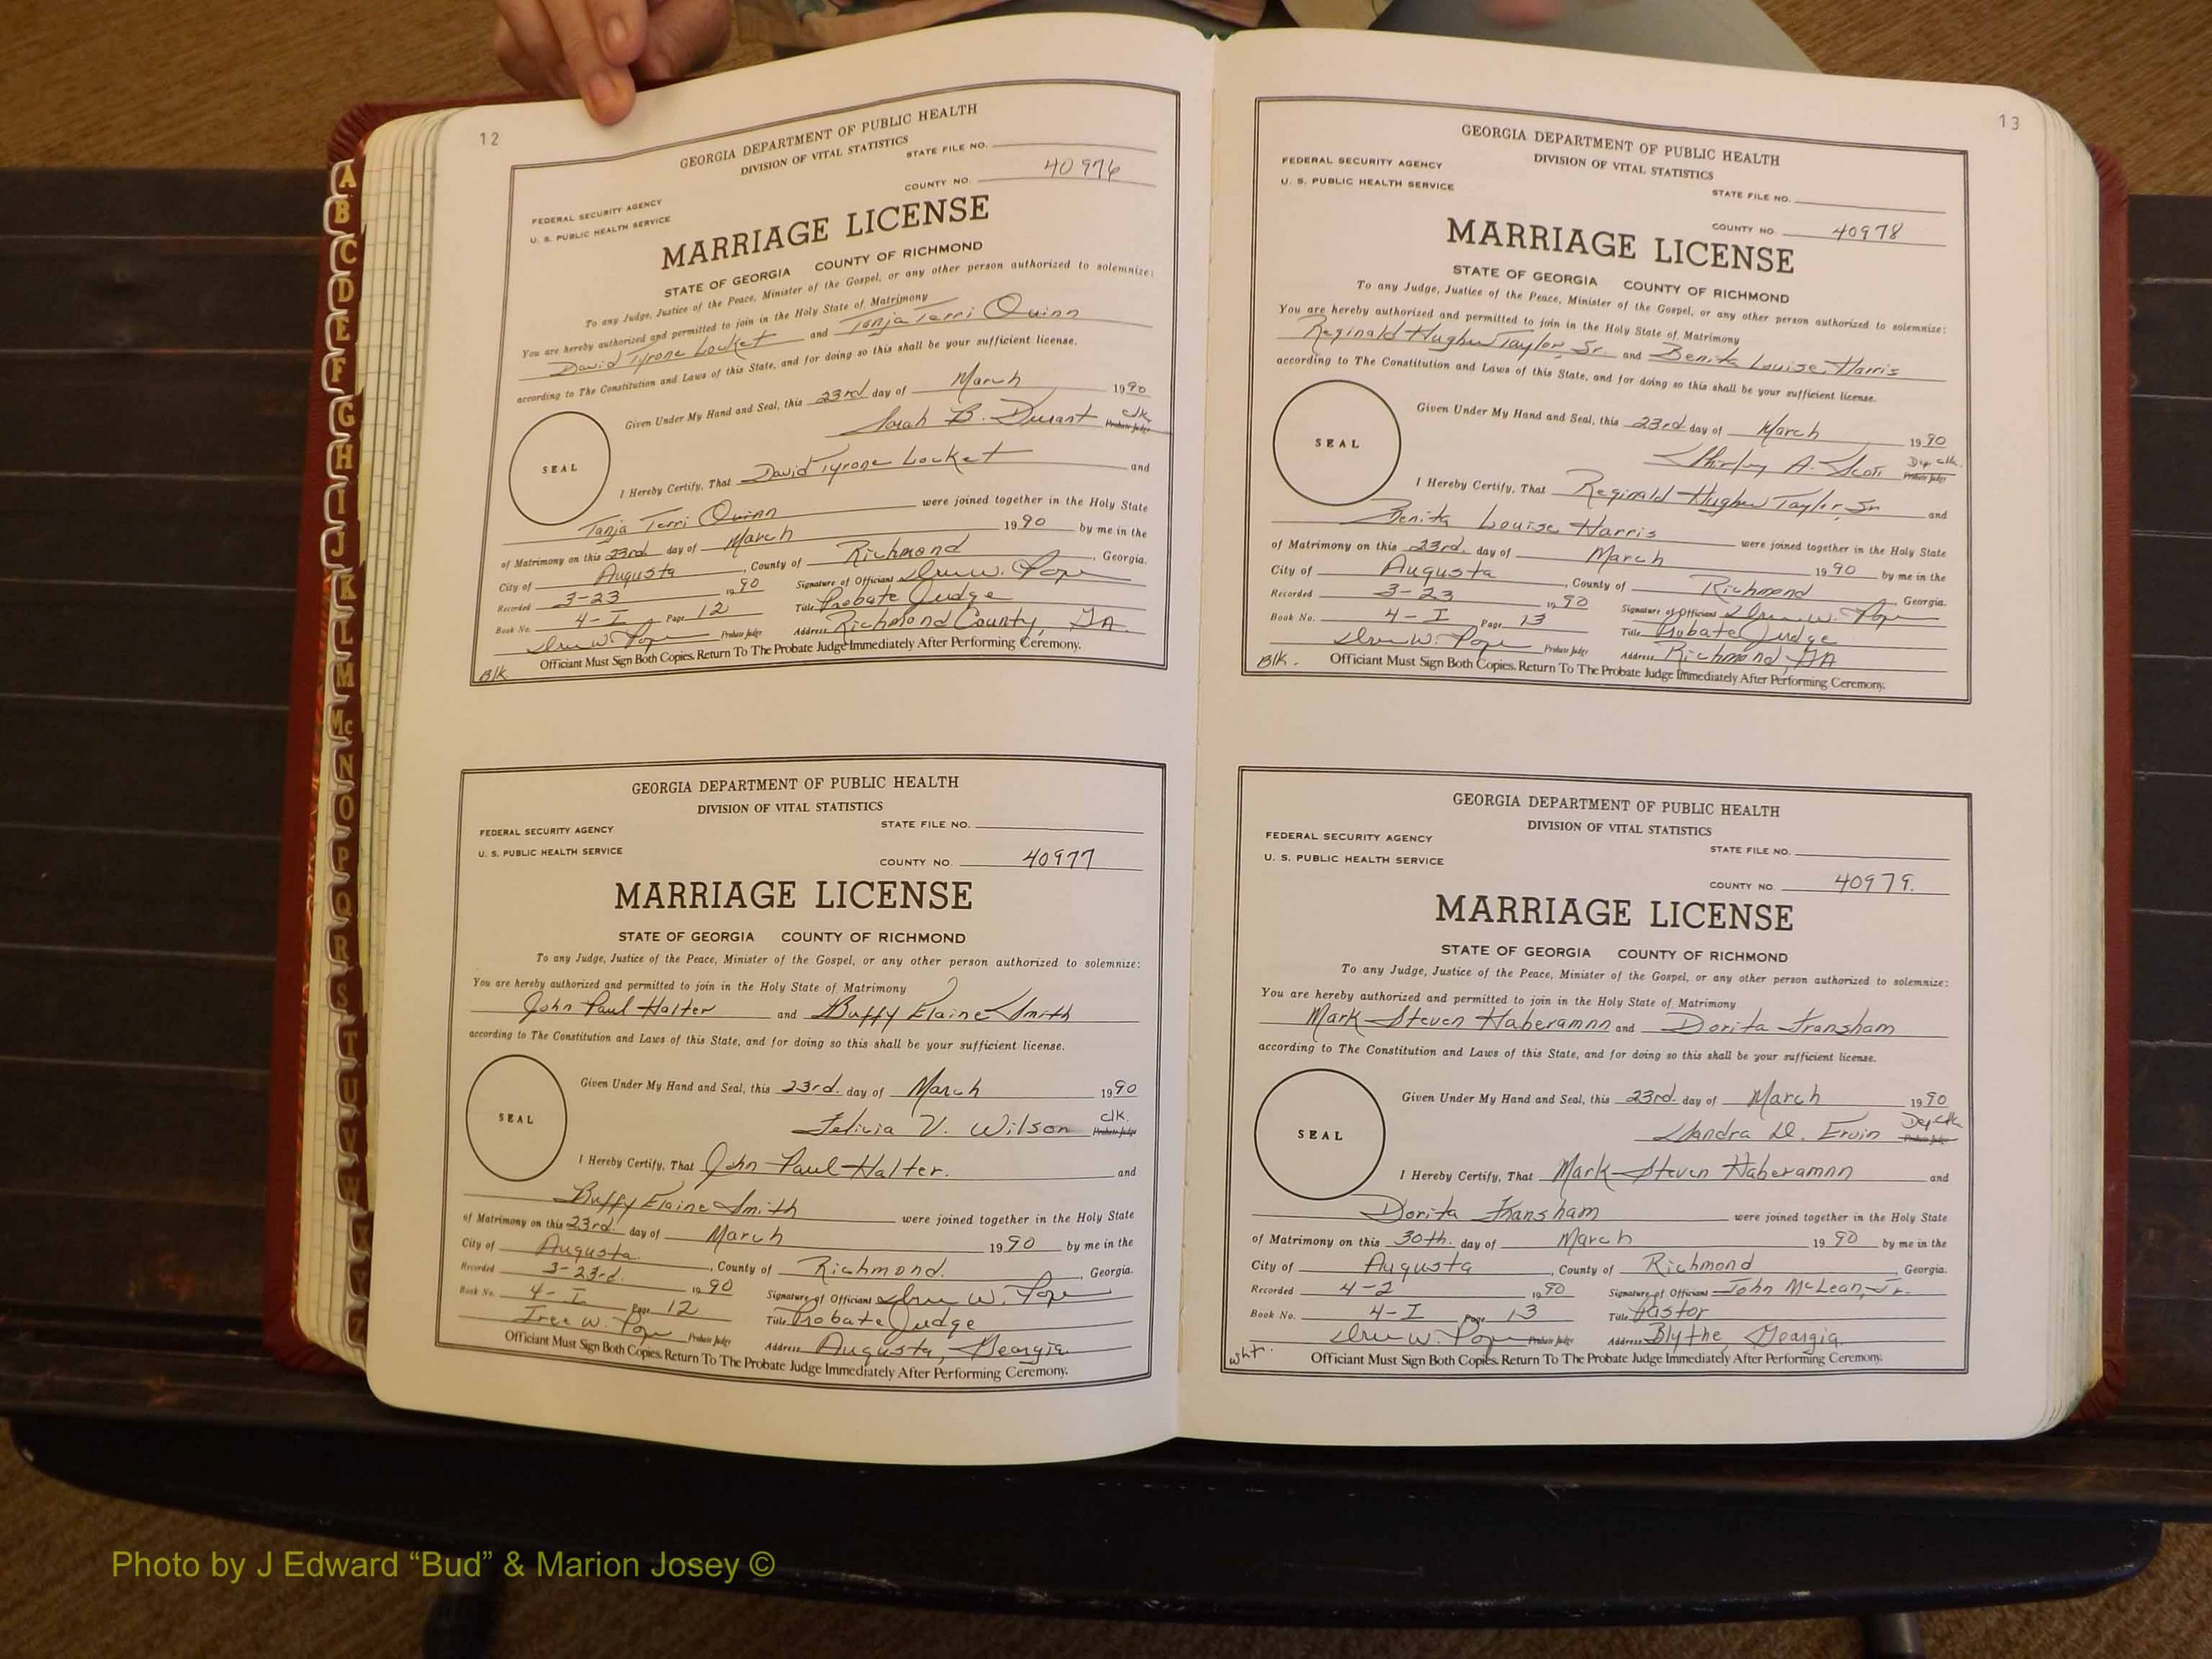 12
GEORGIA DEPARTMENT OF PUBLIC HEALTH
DIVISION OF VITAL STATISTICS
STATE FILE NO.
COUNTY NO. 40976
FEDERAL SECURITY AGENCY
U. S. PUBLIC HEALTH SERVICE
MARRIAGE LICENSE
STATE OF GEORGIA COUNTY OF RICHMOND
To any Judge, Justice of the Peace, Minister of the Gospel, or any other person authorized to solemnize:
You are hereby authorized and permitted to join in the Holy State of Matrimony
David Tyrone Locket and Tanja Terri Quinn
according to The Constitution and Laws of this State, and for doing so this shall be your sufficient license.
Given Under My Hand and Seal, this 23rd day of March 1990
Sarah B. Durant Clk Probate Judge
SEAL
I Hereby Certify, That David Tyrone Locket and
Tanja Terri Quinn were joined together in the Holy State
of Matrimony on this 23rd day of March 1990 by me in the
City of Augusta, County of Richmond, Georgia.
Recorded 3-23 1990 Signature of Officiant W. Pope
Book No. 4-I Page 12 Title Probate Judge
W. Pope Probate Judge Address Richmond County, GA.
Blk Officiant Must Sign Both Copies. Return To The Probate Judge Immediately After Performing Ceremony.
GEORGIA DEPARTMENT OF PUBLIC HEALTH
DIVISION OF VITAL STATISTICS
STATE FILE NO.
FEDERAL SECURITY AGENCY
U. S. PUBLIC HEALTH SERVICE
COUNTY NO. 40977
MARRIAGE LICENSE
STATE OF GEORGIA COUNTY OF RICHMOND
To any Judge, Justice of the Peace, Minister of the Gospel, or any other person authorized to solemnize:
You are hereby authorized and permitted to join in the Holy State of Matrimony
John Paul Halter and Buffy Elaine Smith
according to The Constitution and Laws of this State, and for doing so this shall be your sufficient license.
Given Under My Hand and Seal, this 23rd. day of March 1990
Felicia V. Wilson Clk. Probate Judge
SEAL
I Hereby Certify, That John Paul Halter. and
Buffy Elaine Smith were joined together in the Holy State
of Matrimony on this 23rd. day of March 1990 by me in the
City of Augusta. , County of Richmond. , Georgia.
Recorded 3-23rd. 1990 Signature of Officiant W. Pope
Book No. 4-I Page 12 Title Probate Judge
W. Pope Probate Judge Address Augusta, Georgia
Officiant Must Sign Both Copies. Return To The Probate Judge Immediately After Performing Ceremony.
13
GEORGIA DEPARTMENT OF PUBLIC HEALTH
DIVISION OF VITAL STATISTICS
FEDERAL SECURITY AGENCY
U. S. PUBLIC HEALTH SERVICE
STATE FILE NO.
COUNTY NO. 40978
MARRIAGE LICENSE
STATE OF GEORGIA COUNTY OF RICHMOND
To any Judge, Justice of the Peace, Minister of the Gospel, or any other person authorized to solemnize:
You are hereby authorized and permitted to join in the Holy State of Matrimony
Reginald Hughn Taylor, Sr. and Benita Louise Harris
according to The Constitution and Laws of this State, and for doing so this shall be your sufficient license.
Given Under My Hand and Seal, this 23rd day of March 1990
Shirley A. Scott Dep clk. Probate Judge
SEAL
I Hereby Certify, That Reginald Hughn Taylor, Sr and
Benita Louise Harris were joined together in the Holy State
of Matrimony on this 23rd. day of March 1990 by me in the
City of Augusta, County of Richmond, Georgia.
Recorded 3-23 1990 Signature of Officiant W. Pope
Book No. 4-I Page 13 Title Probate Judge
W. Pope Probate Judge Address Richmond, GA
Blk. Officiant Must Sign Both Copies. Return To The Probate Judge Immediately After Performing Ceremony.
GEORGIA DEPARTMENT OF PUBLIC HEALTH
DIVISION OF VITAL STATISTICS
FEDERAL SECURITY AGENCY
U. S. PUBLIC HEALTH SERVICE
STATE FILE NO.
COUNTY NO. 40979.
MARRIAGE LICENSE
STATE OF GEORGIA COUNTY OF RICHMOND
To any Judge, Justice of the Peace, Minister of the Gospel, or any other person authorized to solemnize:
You are hereby authorized and permitted to join in the Holy State of Matrimony
Mark Steven Haberamnn and Dorita Fransham
according to The Constitution and Laws of this State, and for doing so this shall be your sufficient license.
Given Under My Hand and Seal, this 23rd. day of March 1990
Sandra D. Ervin Dep Clk Probate Judge
SEAL
I Hereby Certify, That Mark Steven Haberamnn and
Dorita Fransham were joined together in the Holy State
of Matrimony on this 30th. day of March 1990 by me in the
City of Augusta, County of Richmond, Georgia.
Recorded 4-2 1990 Signature of Officiant John McLean, Jr.
Book No. 4-I Page 13 Title Pastor
W. Pope Probate Judge Address Blythe, Georgia
wht. Officiant Must Sign Both Copies. Return To The Probate Judge Immediately After Performing Ceremony.
A
B
C
D
E
F
G
H
I
J
K
L
M
Mc
N
O
P
Q
R
S
T
U
V
W
X
Y
Z
Photo by J Edward “Bud” & Marion Josey ©